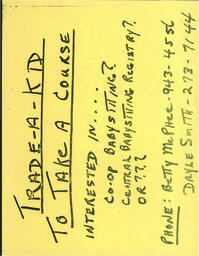 TRADE-A-KID
TO TAKE A COURSE
INTERESTED IN....
CO-OP BABYSITTING?
CENTRAL BABYSITTING REGISTRY?
OR???
PHONE: BETTY MCPHEE-943-4556
DAYLE SMITH-273-7144